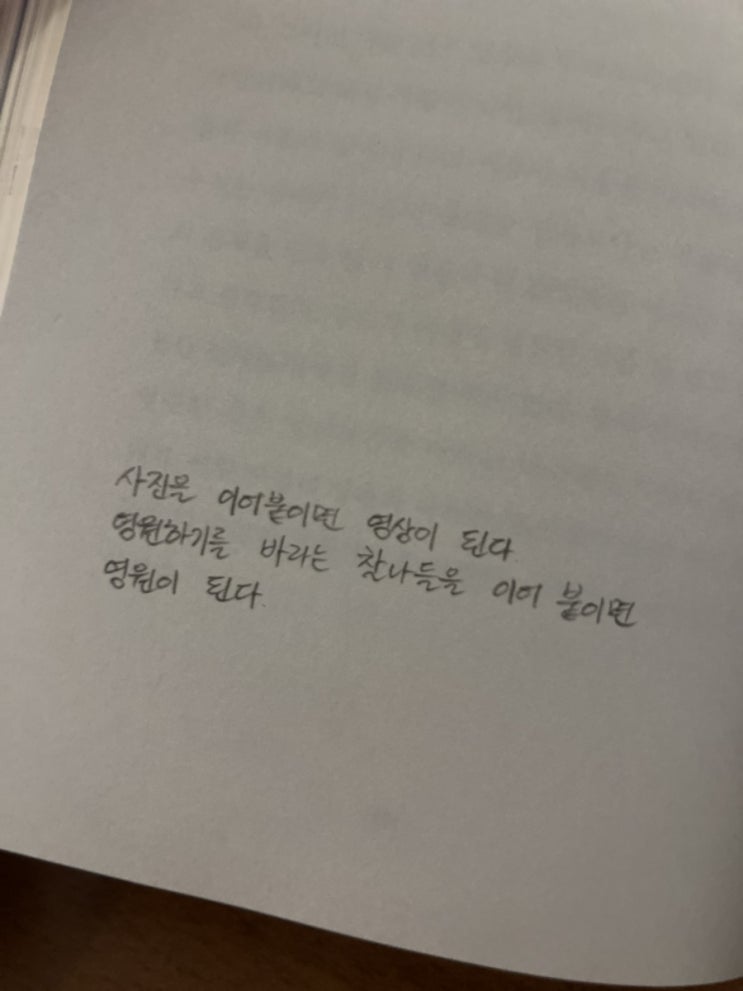 사진을 이어붙이면 영상이 된다
영원하기를 바라는 찰나들을 이어 붙이면
영원이 된다.